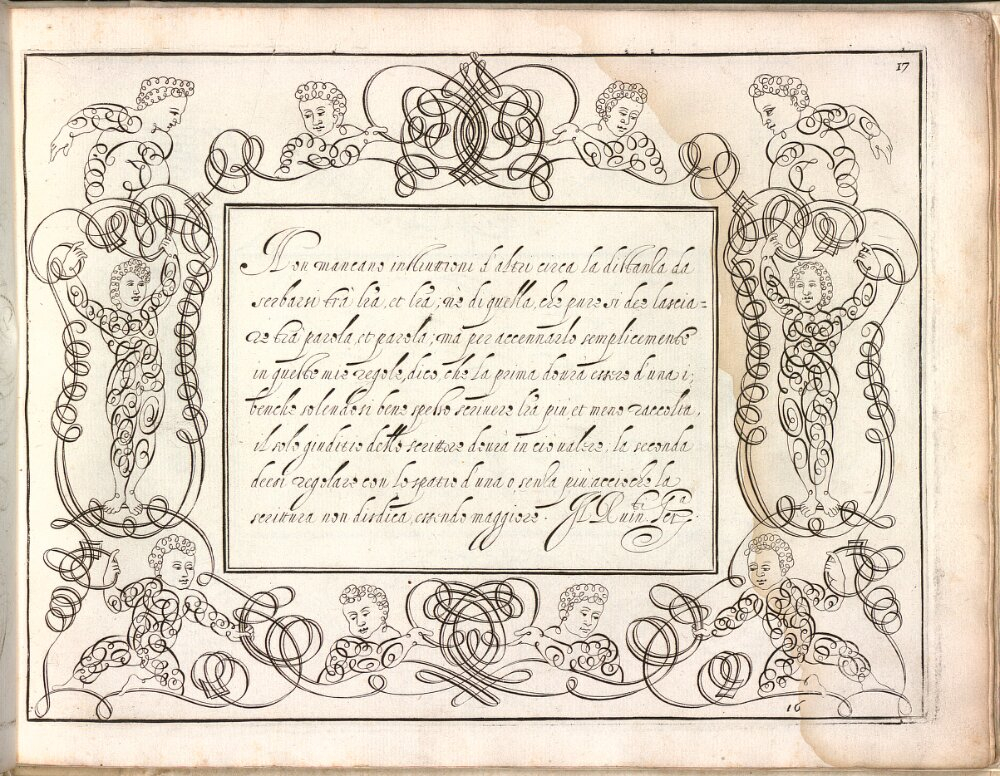 17
Non mancano instruttioni d'altri circa la distanza da
serbarsi trà lr̃a, et lr̃a; ne di quella, che pure si dee lascia=
re trà parola, et parola; ma per accennarlo semplicemente
in queste mie regole, dico, che la prima dourà essere d'una i;
benche solendosi bene spesso scriuere lr̃a più et meno raccolta,
il solo giuditio dello scrittore dourà in cio ualere; la seconda
deesi regolare con lo spatio d'una o senza più, accioche la
scrittura non disdica, essendo maggiore.
16